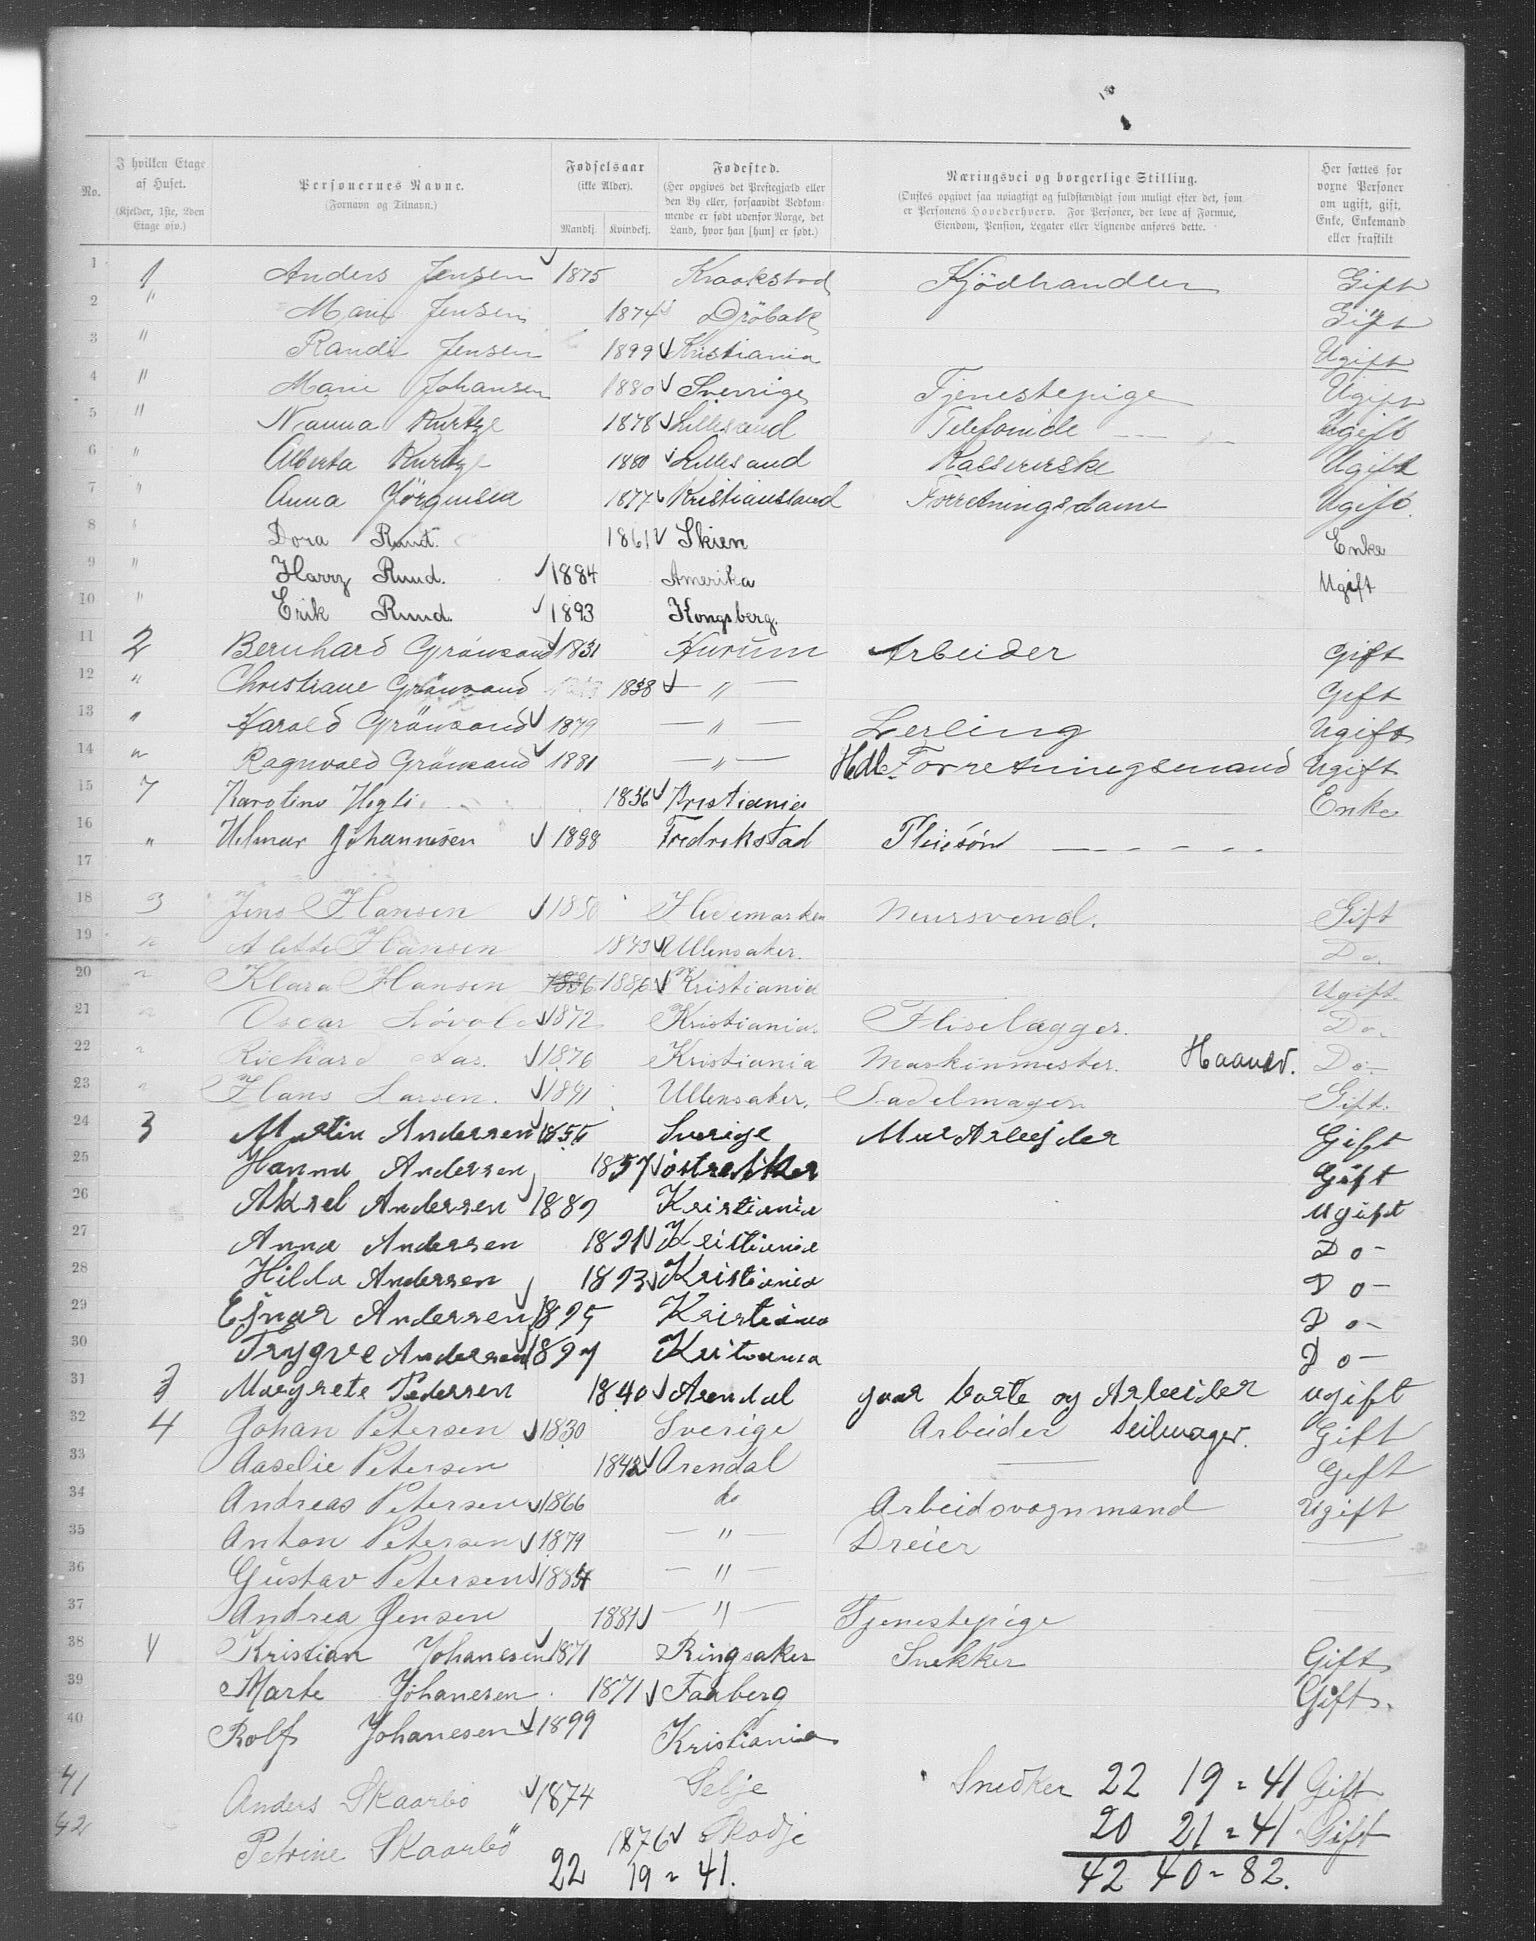 No. | I hvilken Etage af Huset. (Kjelder, 1ste, 2den Etage osv.) | Personernes Navne. (Fornavn og Tilnavn.) | Fødselsaar (ikke Alder). Mandkj. Kvindekj. | Fødested. (Her opgives det Prestegjæld eller den By eller, forsaavidt Vedkommende er født udenfor Norge, det Land, hvor han [hun] er født.) | Næringsvei og borgerlige Stilling. (Ønskes opgivet saa nøiagtigt og fuldstændigt som muligt efter det, som er Personens Hovederhverv. For Personer, der leve af Formue, Eiendom, Pension, Legater eller Lignende anføres dette. | Her sættes for voxne Personer om ugift, gift, Enke, Enkemand eller fraskilt
1 1 Anders Jensen 1875 Kraakstad Kjödhandler Gift
2 " Marie Jensen 1874 Dröbak Gift
3 " Randi Jensen 1899 Kristiania Ugift
4 " Marie Johansen 1880 Sverrige Tjenestepige Ugift
5 " Nanna Kurtze 1878 Lillesand Ugift
6 " Alberta Kurtze 1880 Lillesand Kassererske Ugift
7 " Anna Jörgensen 1877 Kristianssand Forretningsdame Ugift
8 " Dora Ruud. 1861 Skien Enke
9 " Harry Ruud. 1884 Amerika Ugift
10 " Erik Ruud. 1893 Kongsberg.
11 2 Bernhard Grönsand 1831 Hurum Arbeider Gift
12 " Christiane Grönsand 1838 — " — Gift
13 " Harald Grönsand 1879 — " — Lerling Ugift
14 " Ragnvald Grönsand 1881 — " — Hdl. Forretningsmand Ugift
15 7 Karoline 1836 Kristiania Enke
16 " Hilmar Johannesen 1888 Fredrikstad Pleiesön — — — —
17
18 3 Jens Hansen 1850 Hedemarken Mursvend. Gift
19 " Alette Hansen 1843 Ullensaker. Do.
20 " Klara Hansen 1886 1886 Kristiania Ugift
21 " Oscar 1872 Kristiania. Fliselægger. Do.
22 " Richard Aas. 1876 Kristiania Maskinmester. Haandv. Do.
23 " Hans Larsen. 1841 Ullensaker. Sadelmager Gift.
24 3 Martin Andersen 1855 Sverige MurArbejder Gift
25 Hanna Andersen 1857 Gift
26 Aksel Andersen 1889 Kristiania Ugift
27 Anna Andersen 1891 Kristiania Do-
28 Hilda Andersen 1893 Kristiania Do-
29 Ejnar Andersen 1895 Kristiania Do-
30 Trygve Andersen 1897 Kristiania Do-
31 3 Margrete Pedersen 1840 Arendal gaar borte og Arbeider ugift
32 4 Johan Petersen 1830 Sverige Arbeider Seilmager. Gift
33 Aaselie Petersen 1842 Arendal — Gift
34 Andreas Petersen 1866 do Arbeidsvognmand Ugift
35 Anton Petersen 1879 — " — Dreier —
36 Gustav Petersen 1884 — " —
37 Andrea Jensen 1881 — " — Tjenestepige
38 4 Kristian Johanesen 1871 Ringsaker Snekker Gift
39 Marte Johanesen 1871 Faaberg Gift.
40 Rolf Johanesen 1899 Kristiania
41 Anders Skaarbö 1874 Selje Snedker 22 19 = 41 Gift
42 Petrine Skaarbö 1876 Skodje 20 21 = 41 Gift
22 19 = 41. 42 40 = 82.